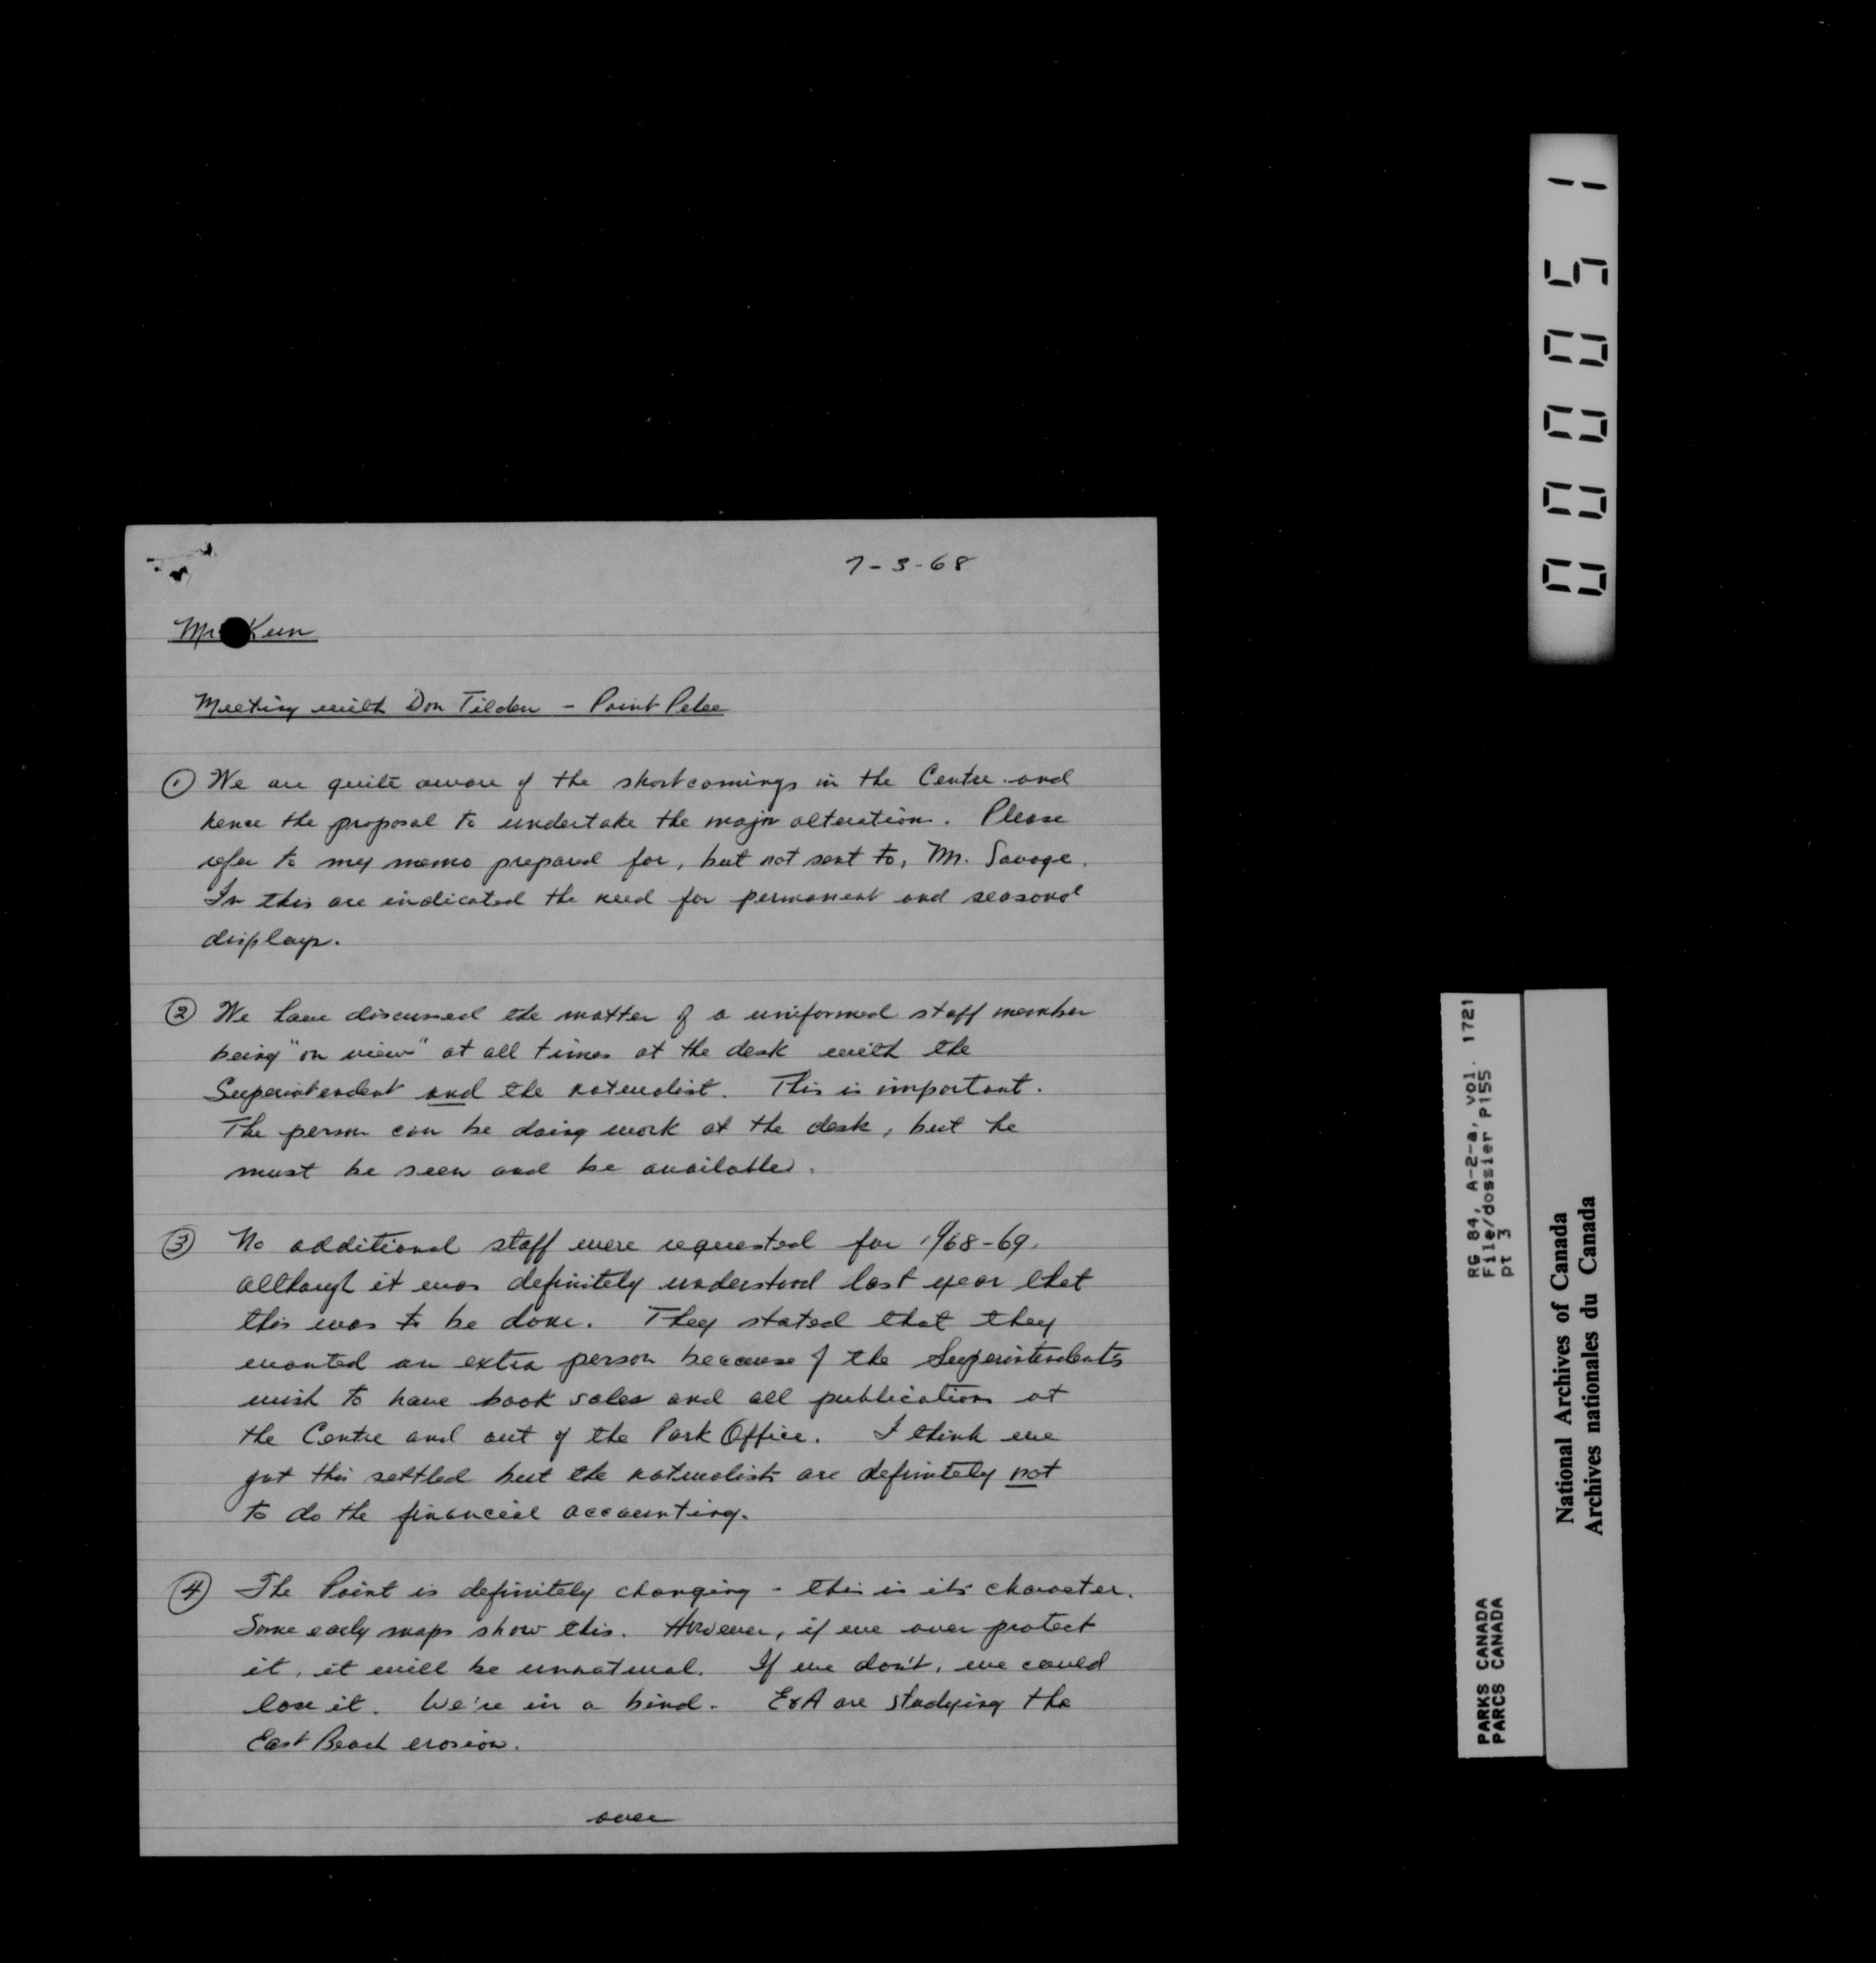 7-3-68
Mr Kun
Meeting with Don Tilden - Point Pelee
① We are quite aware of the shortcomings in the Centre and
hence the proposal to undertake the major alterations. Please
refer to my memo prepared for, but not sent to, Mr. Savage.
In this are indicated the need for permanent and seasonal
displays.
② We have discussed the matter of a uniformed staff member
being "on view" at all times at the desk with the
Superintendent and the naturalist. This is important.
The person can be doing work at the desk, but he
must be seen and be available.
③ No additional staff were requested for 1968-69,
although it was definitely understood last year that
this was to be done. They stated that they
wanted an extra person because of the Superintendent's
wish to have book sales and all publications at
the Centre and out of the Park Office. I think we
got this settled but the naturalists are definitely not
to do the financial accounting.
④ The Point is definitely changing - this is its character.
Some early maps show this. However, if we over protect
it, it will be unnatural. If we don't, we could
lose it. We're in a bind. E&A are studying the
East Beach erosion.
over
000051
RG 84, A-2-a, vol. 1721
File/dossier P155
pt 3
PARKS CANADA
PARCS CANADA
National Archives of Canada
Archives nationales du Canada